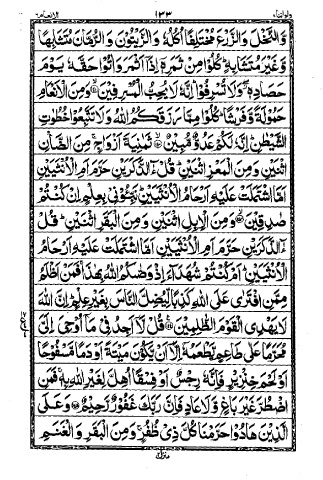 ولواننا ٨ ١٣٣ الانعام ٦
وَّالنَّخْلَ وَالزَّرْعَ مُخْتَلِفًا اُكُلُهٗ وَالزَّيْتُوْنَ وَالرُّمَّانَ مُتَشَابِهًا
وَّغَيْرَ مُتَشَابِهٍ كُلُوْا مِنْ ثَمَرِهٖٓ اِذَآ اَثْمَرَ وَاٰتُوْا حَقَّهٗ يَوْمَ
حَصَادِهٖ وَلَا تُسْرِفُوْا اِنَّهٗ لَا يُحِبُّ الْمُسْرِفِيْنَ وَمِنَ الْاَنْعَامِ
حَمُوْلَةً وَّفَرْشًا كُلُوْا مِمَّا رَزَقَكُمُ اللّٰهُ وَلَا تَتَّبِعُوْا خُطُوٰتِ
الشَّيْطٰنِ اِنَّهٗ لَكُمْ عَدُوٌّ مُّبِيْنٌ ثَمٰنِيَةَ اَزْوَاجٍ مِنَ الضَّاْنِ
اثْنَيْنِ وَمِنَ الْمَعْزِ اثْنَيْنِ قُلْ ءٰٓالذَّكَرَيْنِ حَرَّمَ اَمِ الْاُنْثَيَيْنِ
اَمَّا اشْتَمَلَتْ عَلَيْهِ اَرْحَامُ الْاُنْثَيَيْنِ نَبِّـُٔوْنِيْ بِعِلْمٍ اِنْ كُنْتُمْ
صٰدِقِيْنَ وَمِنَ الْاِبِلِ اثْنَيْنِ وَمِنَ الْبَقَرِ اثْنَيْنِ قُلْ
ءٰٓالذَّكَرَيْنِ حَرَّمَ اَمِ الْاُنْثَيَيْنِ اَمَّا اشْتَمَلَتْ عَلَيْهِ اَرْحَامُ
الْاُنْثَيَيْنِ اَمْ كُنْتُمْ شُهَدَآءَ اِذْ وَصّٰىكُمُ اللّٰهُ بِهٰذَا فَمَنْ اَظْلَمُ
مِمَّنِ افْتَرٰى عَلَى اللّٰهِ كَذِبًا لِّيُضِلَّ النَّاسَ بِغَيْرِ عِلْمٍ اِنَّ اللّٰهَ
لَا يَهْدِى الْقَوْمَ الظّٰلِمِيْنَ قُلْ لَّآ اَجِدُ فِيْ مَآ اُوْحِيَ اِلَيَّ
مُحَرَّمًا عَلٰى طَاعِمٍ يَّطْعَمُهٗٓ اِلَّآ اَنْ يَّكُوْنَ مَيْتَةً اَوْ دَمًا مَّسْفُوْحًا
اَوْ لَحْمَ خِنْزِيْرٍ فَاِنَّهٗ رِجْسٌ اَوْ فِسْقًا اُهِلَّ لِغَيْرِ اللّٰهِ بِهٖ فَمَنِ
اضْطُرَّ غَيْرَ بَاغٍ وَّلَا عَادٍ فَاِنَّ رَبَّكَ غَفُوْرٌ رَّحِيْمٌ وَعَلَى
الَّذِيْنَ هَادُوْا حَرَّمْنَا كُلَّ ذِيْ ظُفُرٍ وَمِنَ الْبَقَرِ وَالْغَنَمِ